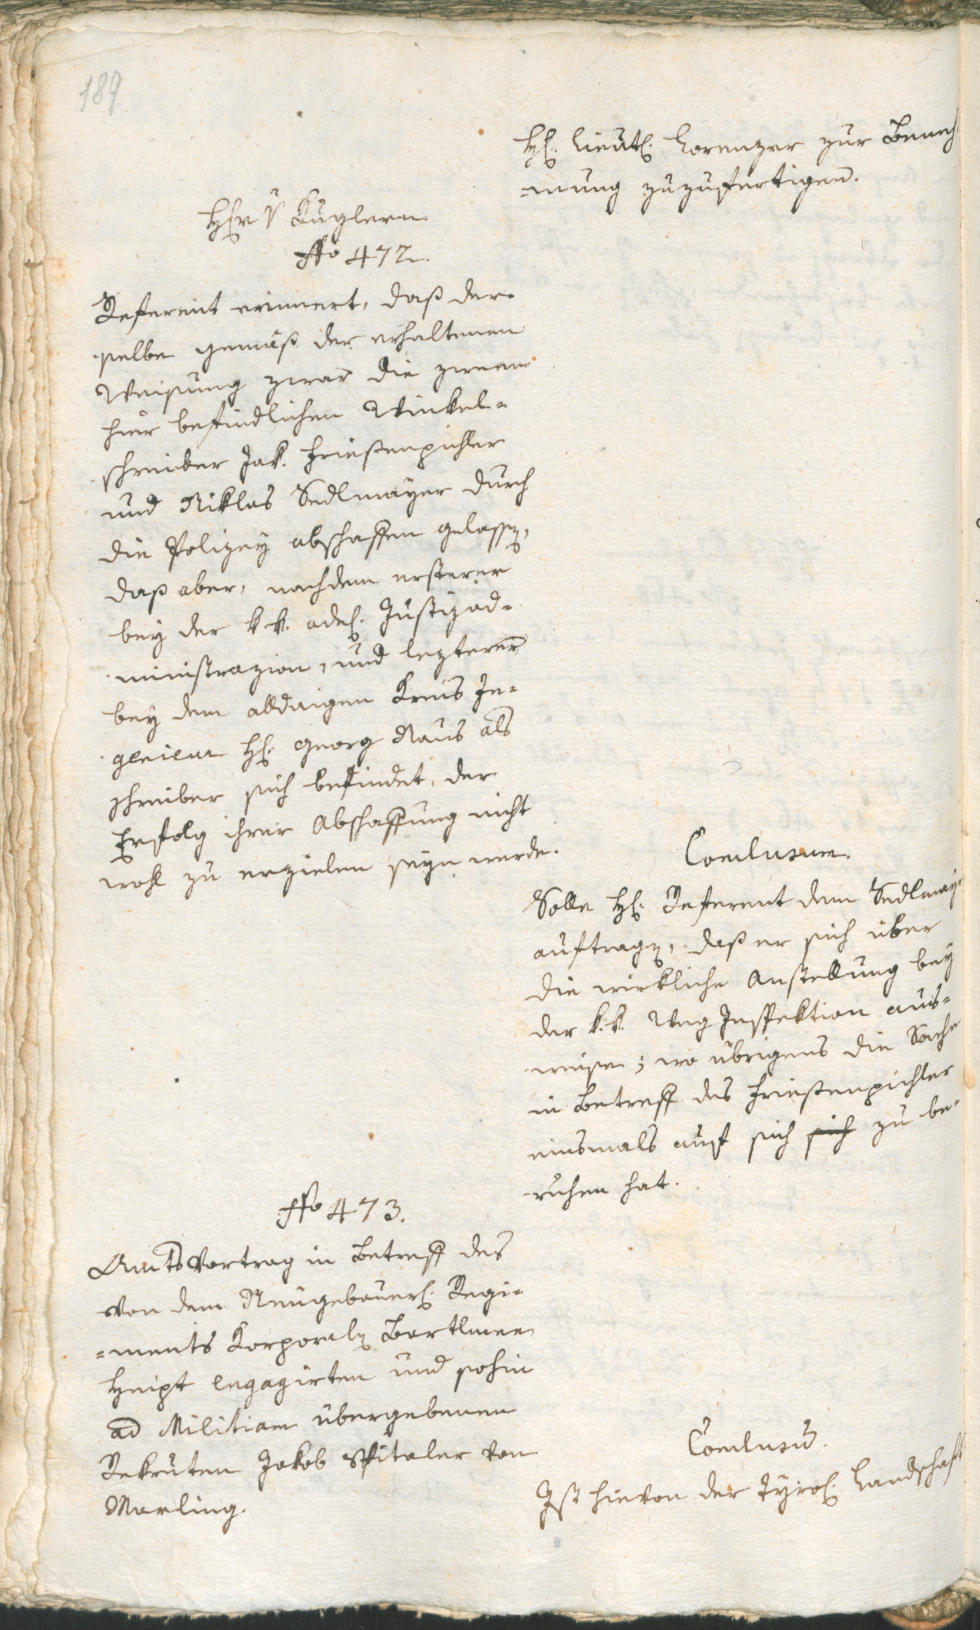 189
H. Lieut. Lorenzer zur Beneh-
=mung zuzufertigen.
H. v Kuglern.
No 472.
Referent erinnert, daß der-
selbe gemäß der erhaltenen
Weisung zwar die zween
hier befindlichen Winkel-
schreiber Jak. Grießenpichler
und Niklas Sedlmayer durch
die Polizey abschaffen gelassen,
daß aber, nachdem ersterer
bey der k.k. adel. Justizad-
ministrazion, und lezterer
bey dem alldaigen Kreis In-
genieur H. Georg Naus als
schreiber sich befindet, der
Erfolg ihrer Abschaffung nicht
wohl zu erzielen seyn werde.
Conclusum.
Solle H. Referent dem Sedlmayr
auftragen, daß er sich über
die wirkliche Anstellung bey
der k.k. Weg Inspektion aus-
weise; wo übrigens die Sache
in Betreff des Grießenpichler
einsmals auf sich sich zu be-
ruhen hat.
No 473.
Amts Vortrag in Betreff des
von dem Neugebauer. Regi-
=ments Korporalen Bartlmee
Haipt engagirten und sohin
ad Militiam übergebenen
Rekruten Jakob Spitaler von
Marling.
Conclusum.
Ist hievon der Tyrol. Landschaft